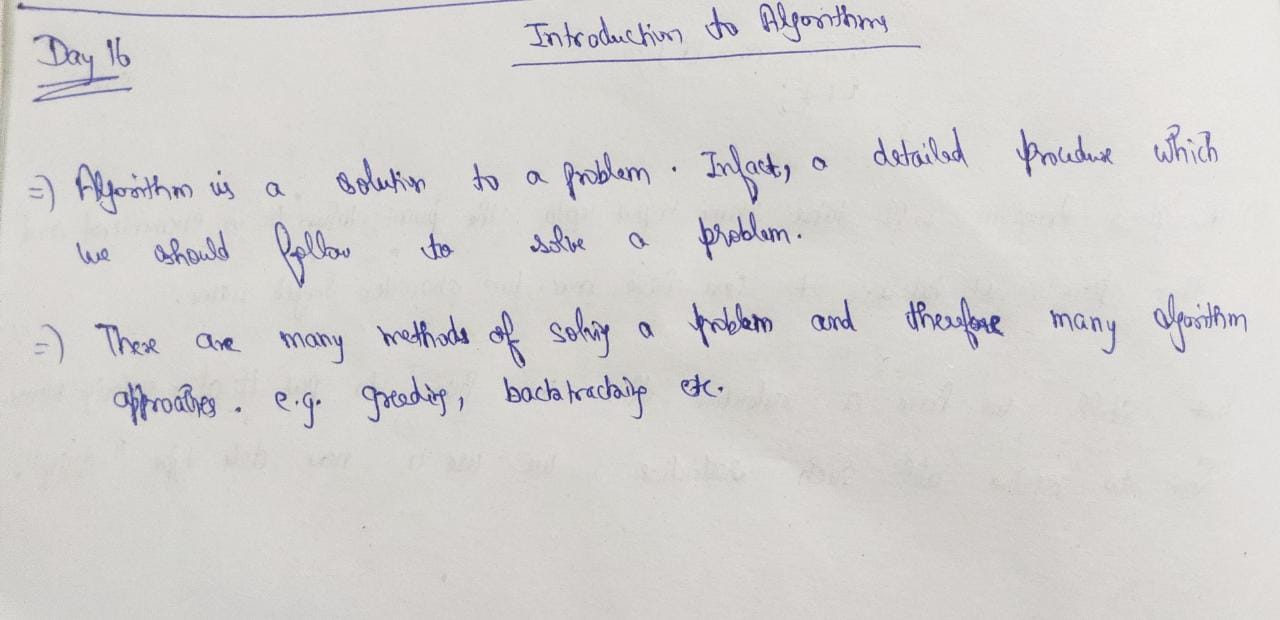 Introduction to Algorithms
Day 16
=) Algorithm is a solution to a problem. Infact, a detailed procedure which
we should follow to solve a problem.
=) There are many methods of solving a problem and therefore many algorithm
approaches. e.g. greeding, backtracking etc.